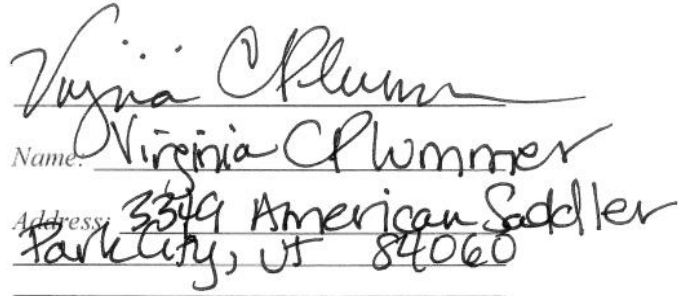 Virginia C Plummer
Name: Virginia C Plummer
Address: 3349 American Saddler
Park City, UT 84060